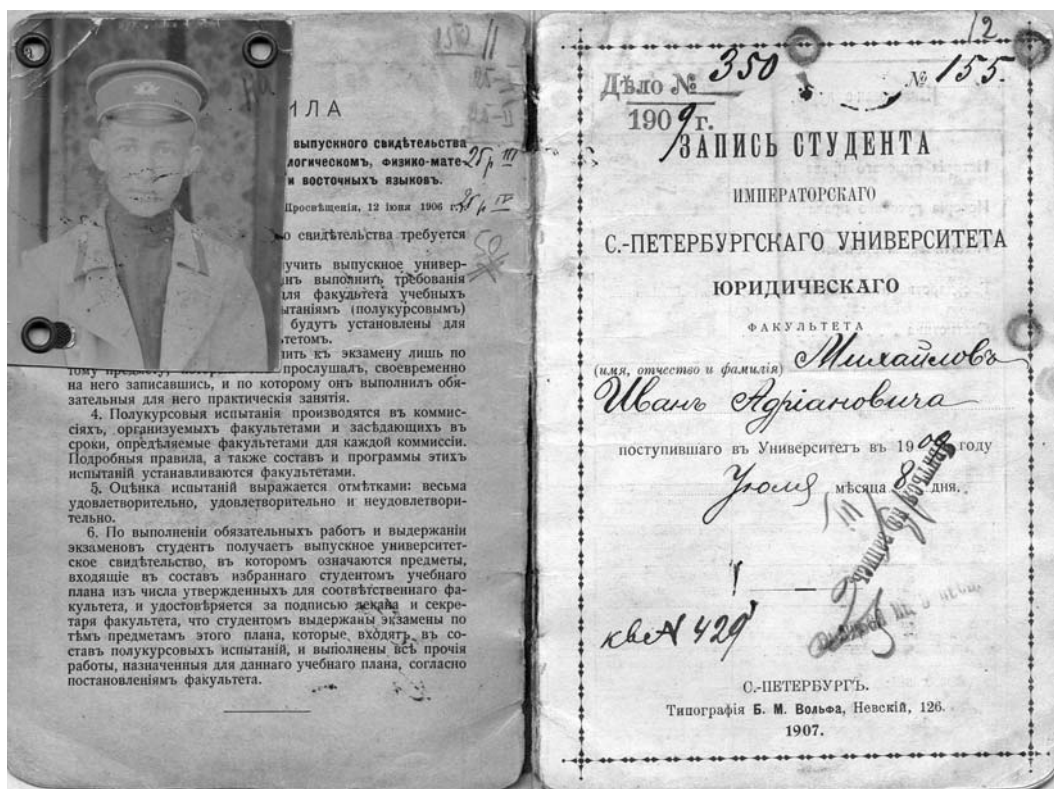 ИЛА
выпускного свидѣтельства
логическомъ, физико-мате-
и восточныхъ языковъ.
Просвѣщенія, 12 іюня 1906 г.
25 р III
25 р IV
50
о свидѣтельства требуется
лучить выпускное универ-
нъ выполнить требованія
ля факультета учебныхъ
ытаніямъ (полукурсовымъ)
будутъ установлены для
ьтетомъ.
ить къ экзамену лишь по
тому
прослушалъ, своевременно
на него записавшись, и по которому онъ выполнилъ обя-
зательныя для него практическія занятія.
4. Полукурсовыя испытанія производятся въ коммис-
сіяхъ, организуемыхъ факультетами и засѣдающихъ въ
сроки, опредѣляемые факультетами для каждой коммиссіи.
Подробныя правила, а также составъ и программы этихъ
испытаній устанавливаются факультетами.
5. Оцѣнка испытаній выражается отмѣтками: весьма
удовлетворительно, удовлетворительно и неудовлетвори-
тельно.
6. По выполненіи обязательныхъ работъ и выдержаніи
экзаменовъ студентъ получаетъ выпускное университет-
ское свидѣтельство, въ которомъ означаются предметы,
входящіе въ составъ избраннаго студентомъ учебнаго
плана изъ числа утвержденныхъ для соотвѣтственнаго фа-
культета, и удостовѣряется за подписью декана и секре-
таря факультета, что студентомъ выдержаны экзамены по
тѣмъ предметамъ этого плана, которые входятъ въ со-
ставъ полукурсовыхъ испытаній, и выполнены всѣ прочія
работы, назначенныя для даннаго учебнаго плана, согласно
постановленіямъ факультета.
12
Дѣло № 350 № 155.
1909 г.
ЗАПИСЬ СТУДЕНТА
ИМПЕРАТОРСКАГО
С.-ПЕТЕРБУРГСКАГО УНИВЕРСИТЕТА
ЮРИДИЧЕСКАГО
ФАКУЛЬТЕТА
(имя, отчество и фамилія) Михайловъ
Иванъ Адріановича
поступившаго въ Университетъ въ 1909 году
Іюля мѣсяца 8 дня.
кв А 429
С.-ПЕТЕРБУРГЪ.
Типографія Б. М. Вольфа, Невскій, 126.
1907.